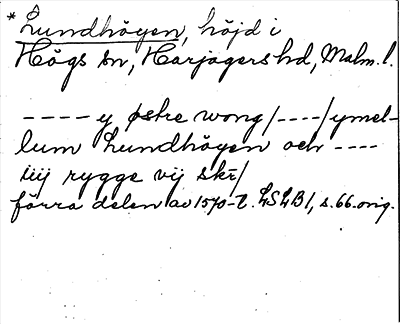 * Lundhöyen, höjd i
Högs sn, Harjagers hd, Malm. l.
---- y østre wong/----/ymel-
lum Lundhöyen och ----
iiij rygge vij skr/
förra delen av 1570-t. LSLB1, s. 66. orig.